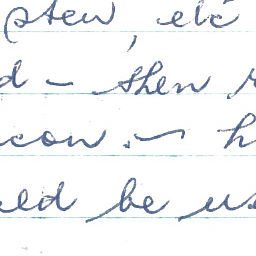 stew, etc
d - then
con. - h
ld be us